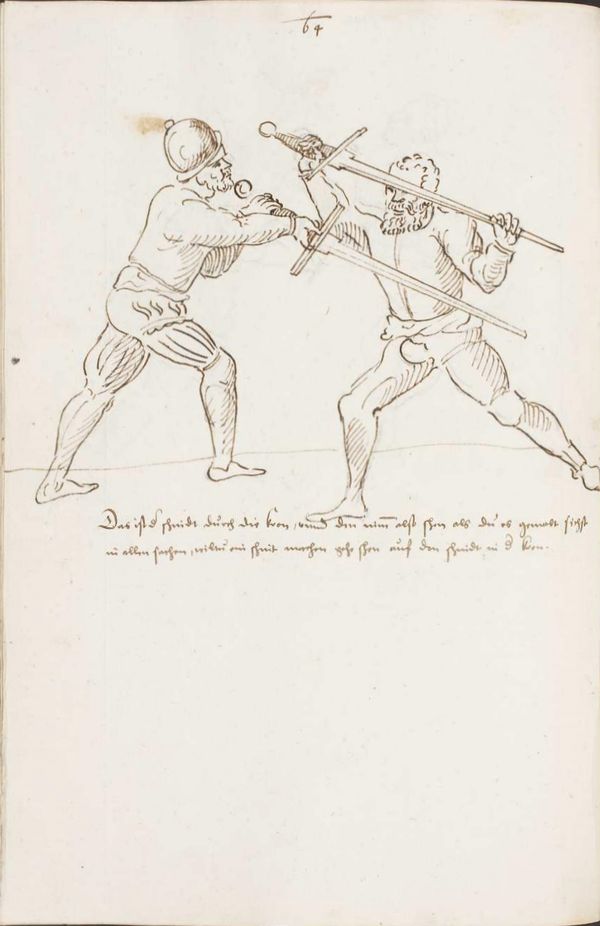 64
Das ist d schnidt durch die kron, vnnd den nim alst schon als du es gemalt sichst
in allen sachen, wiltu ein schnit machen gehe schon auf den schnidt in d kron.